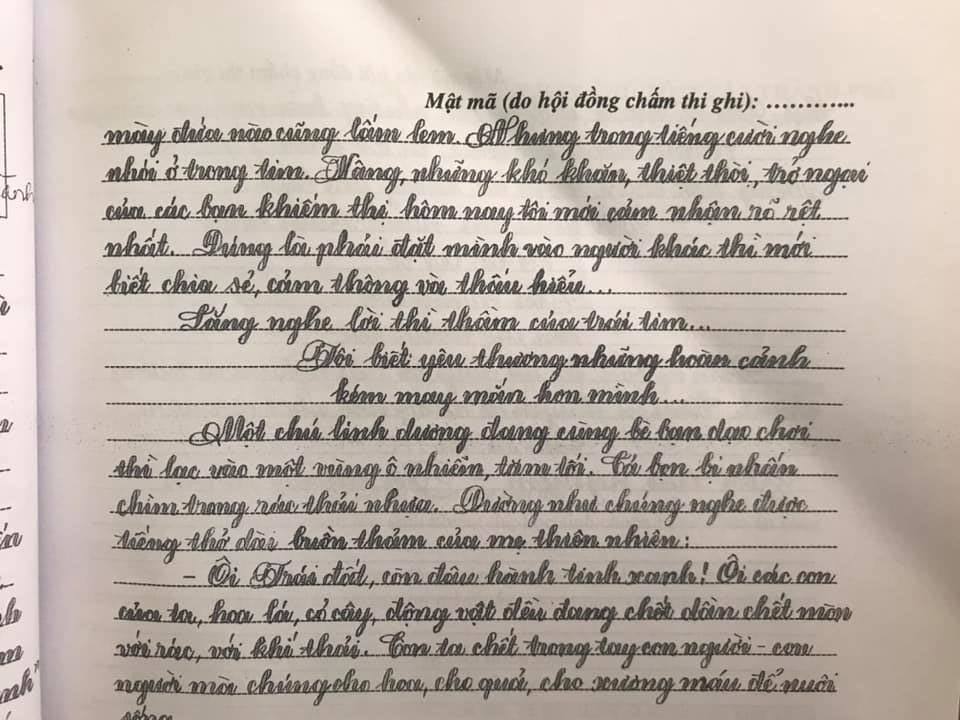 Mật mã (do hội đồng chấm thi ghi): ...............
mày đứa nào cũng lấm lem. Nhưng trong tiếng cười nghe
nhói ở trong tim. Vâng, những khó khăn, thiệt thòi, trở ngại
của các bạn khiếm thị hôm nay tôi mới cảm nhận rõ rệt
nhất. Đúng là phải đặt mình vào người khác thì mới
biết chia sẻ, cảm thông và thấu hiểu...
Lắng nghe lời thì thầm của trái tim...
Tôi biết yêu thương những hoàn cảnh
kém may mắn hơn mình...
Một chú linh dương đang cùng bè bạn dạo chơi
thì lạc vào một vùng ô nhiễm, tăm tối. Cả bọn bị nhấn
chìm trong rác thải nhựa. Dường như chúng nghe được
tiếng thở dài buồn thảm của mẹ thiên nhiên:
- Ôi Trái đất, còn đâu hành tinh xanh! Ôi các con
của ta, hoa lá, cỏ cây, động vật đều đang chết dần chết mòn
với rác, với khí thải. Con ta chết trong tay con người - con
người mà chúng cho hoa, cho quả, cho xương máu để nuôi
sống